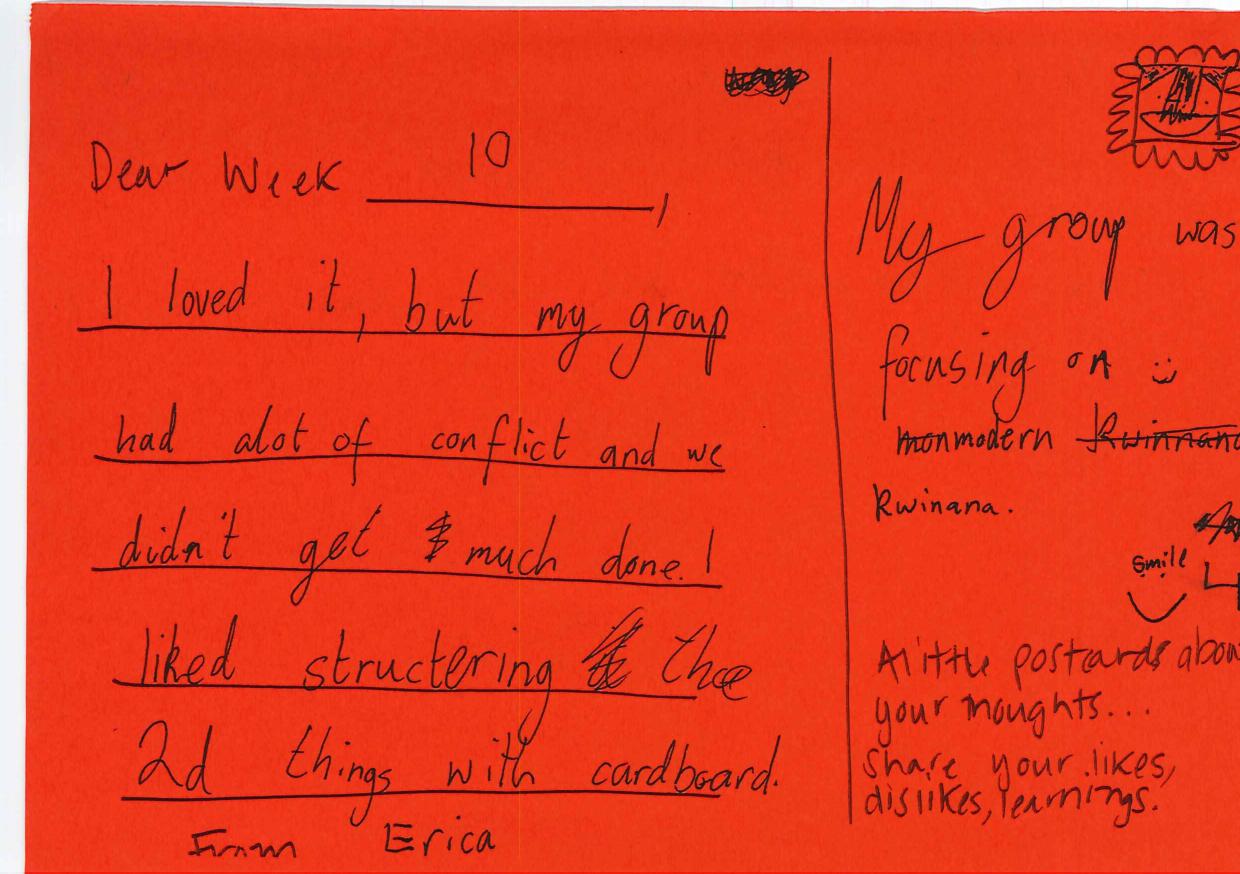 Dear Week 10,
I loved it, but my group
had alot of conflict and we
didn't get much done. I
liked structering the
2d things with cardboard.
From Erica
My group was
focusing on
monmodern Kwinnana
Kwinana.
smile
A little postcards abou
your thoughts...
Share your likes,
dislikes, learnings.